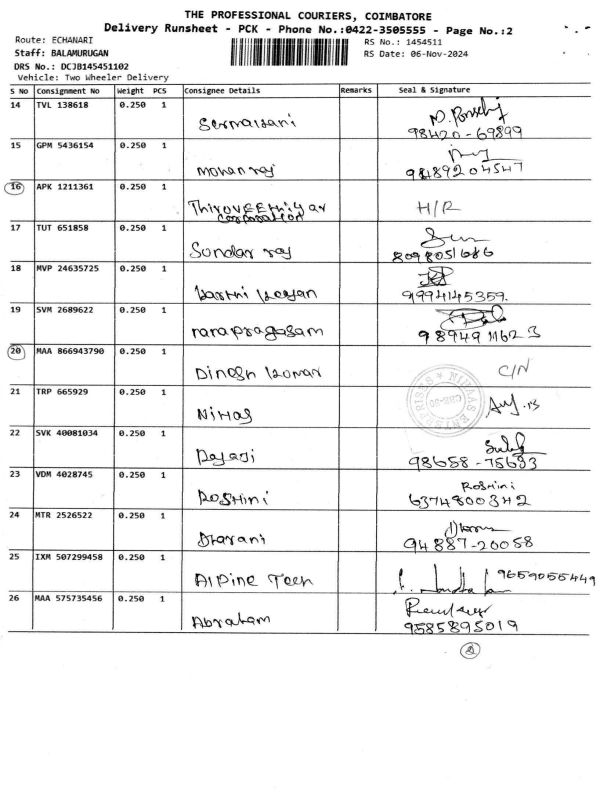 THE PROFESSIONAL COURIERS, COIMBATORE
Delivery Runsheet - PCK - Phone No.:0422-3505555 - Page No.:2
Route: ECHANARI
RS No.: 1454511
Staff: BALAMURUGAN
RS Date: 06-Nov-2024
DRS No.: DCJB145451102
Vehicle: Two Wheeler Delivery
S No Consignment No Weight PCS Consignee Details Remarks Seal & Signature
14 TVL 138618 0.250 1
98420-69899
15 GPM 5436154 0.250 1
Mohan raj 9489204547
16 APK 1211361 0.250 1
Thiruveethiyar H/R
corporation
17 TUT 651858 0.250 1
Sundar raj 8098051686
18 MVP 24635725 0.250 1
Karthi Keyan 9994145359.
19 SVM 2689622 0.250 1
nanapragasam
20 MAA 866943790 0.250 1
Dinesh Kumar C/N
21 TRP 665929 0.250 1
Nihas
22 SVK 40081034 0.250 1
98658-75693
23 VDM 4028745 0.250 1
Roshini
Roshini 6374800342
24 MTR 2526522 0.250 1
Dharani 94887-20058
25 IXM 507299458 0.250 1
Alpine Tech 9659055449
26 MAA 575735456 0.250 1
Abraham 9585895019